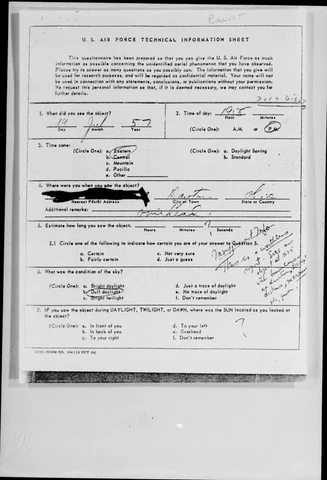 U. S. AIR FORCE TECHNICAL INFORMATION SHEET
This questionnaire has been prepared so that you can give the U. S. Air Force as much
information as possible concerning the unidentified aerial phenomenon that you have observed.
Please try to answer as many questions as you possibly can. The information that you give will
be used for research purposes, and will be regarded as confidential material. Your name will not
be used in connection with any statements, conclusions, or publications without your permission.
We request this personal information so that, if it is deemed necessary, we may contact you for
further details.
1. When did you see the object?
19 Jul 57
Day Month Year
2. Time of day:
Hour Minutes
(Circle One): A.M. or P.M.
3. Time zone:
(Circle One): a. Eastern
b. Central
c. Mountain
d. Pacific
e. Other
(Circle One): a. Daylight Saving
b. Standard
4. Where were you when you saw the object?
Dayton Ohio
Nearest Postal Address City or Town State or Country
Additional remarks:
5. Estimate how long you saw the object.
Hours Minutes Seconds
5.1 Circle one of the following to indicate how certain you are of your answer to Question 5.
a. Certain
b. Fairly certain
c. Not very sure
d. Just a guess
6. What was the condition of the sky?
(Circle One): a. Bright daylight
b. Dull daylight
c. Bright twilight
d. Just a trace of daylight
e. No trace of daylight
f. Don't remember
7. IF you saw the object during DAYLIGHT, TWILIGHT, or DAWN, where was the SUN located as you looked at
the object?
(Circle One): a. In front of you
b. In back of you
c. To your right
d. To your left
e. Overhead
f. Don't remember
?